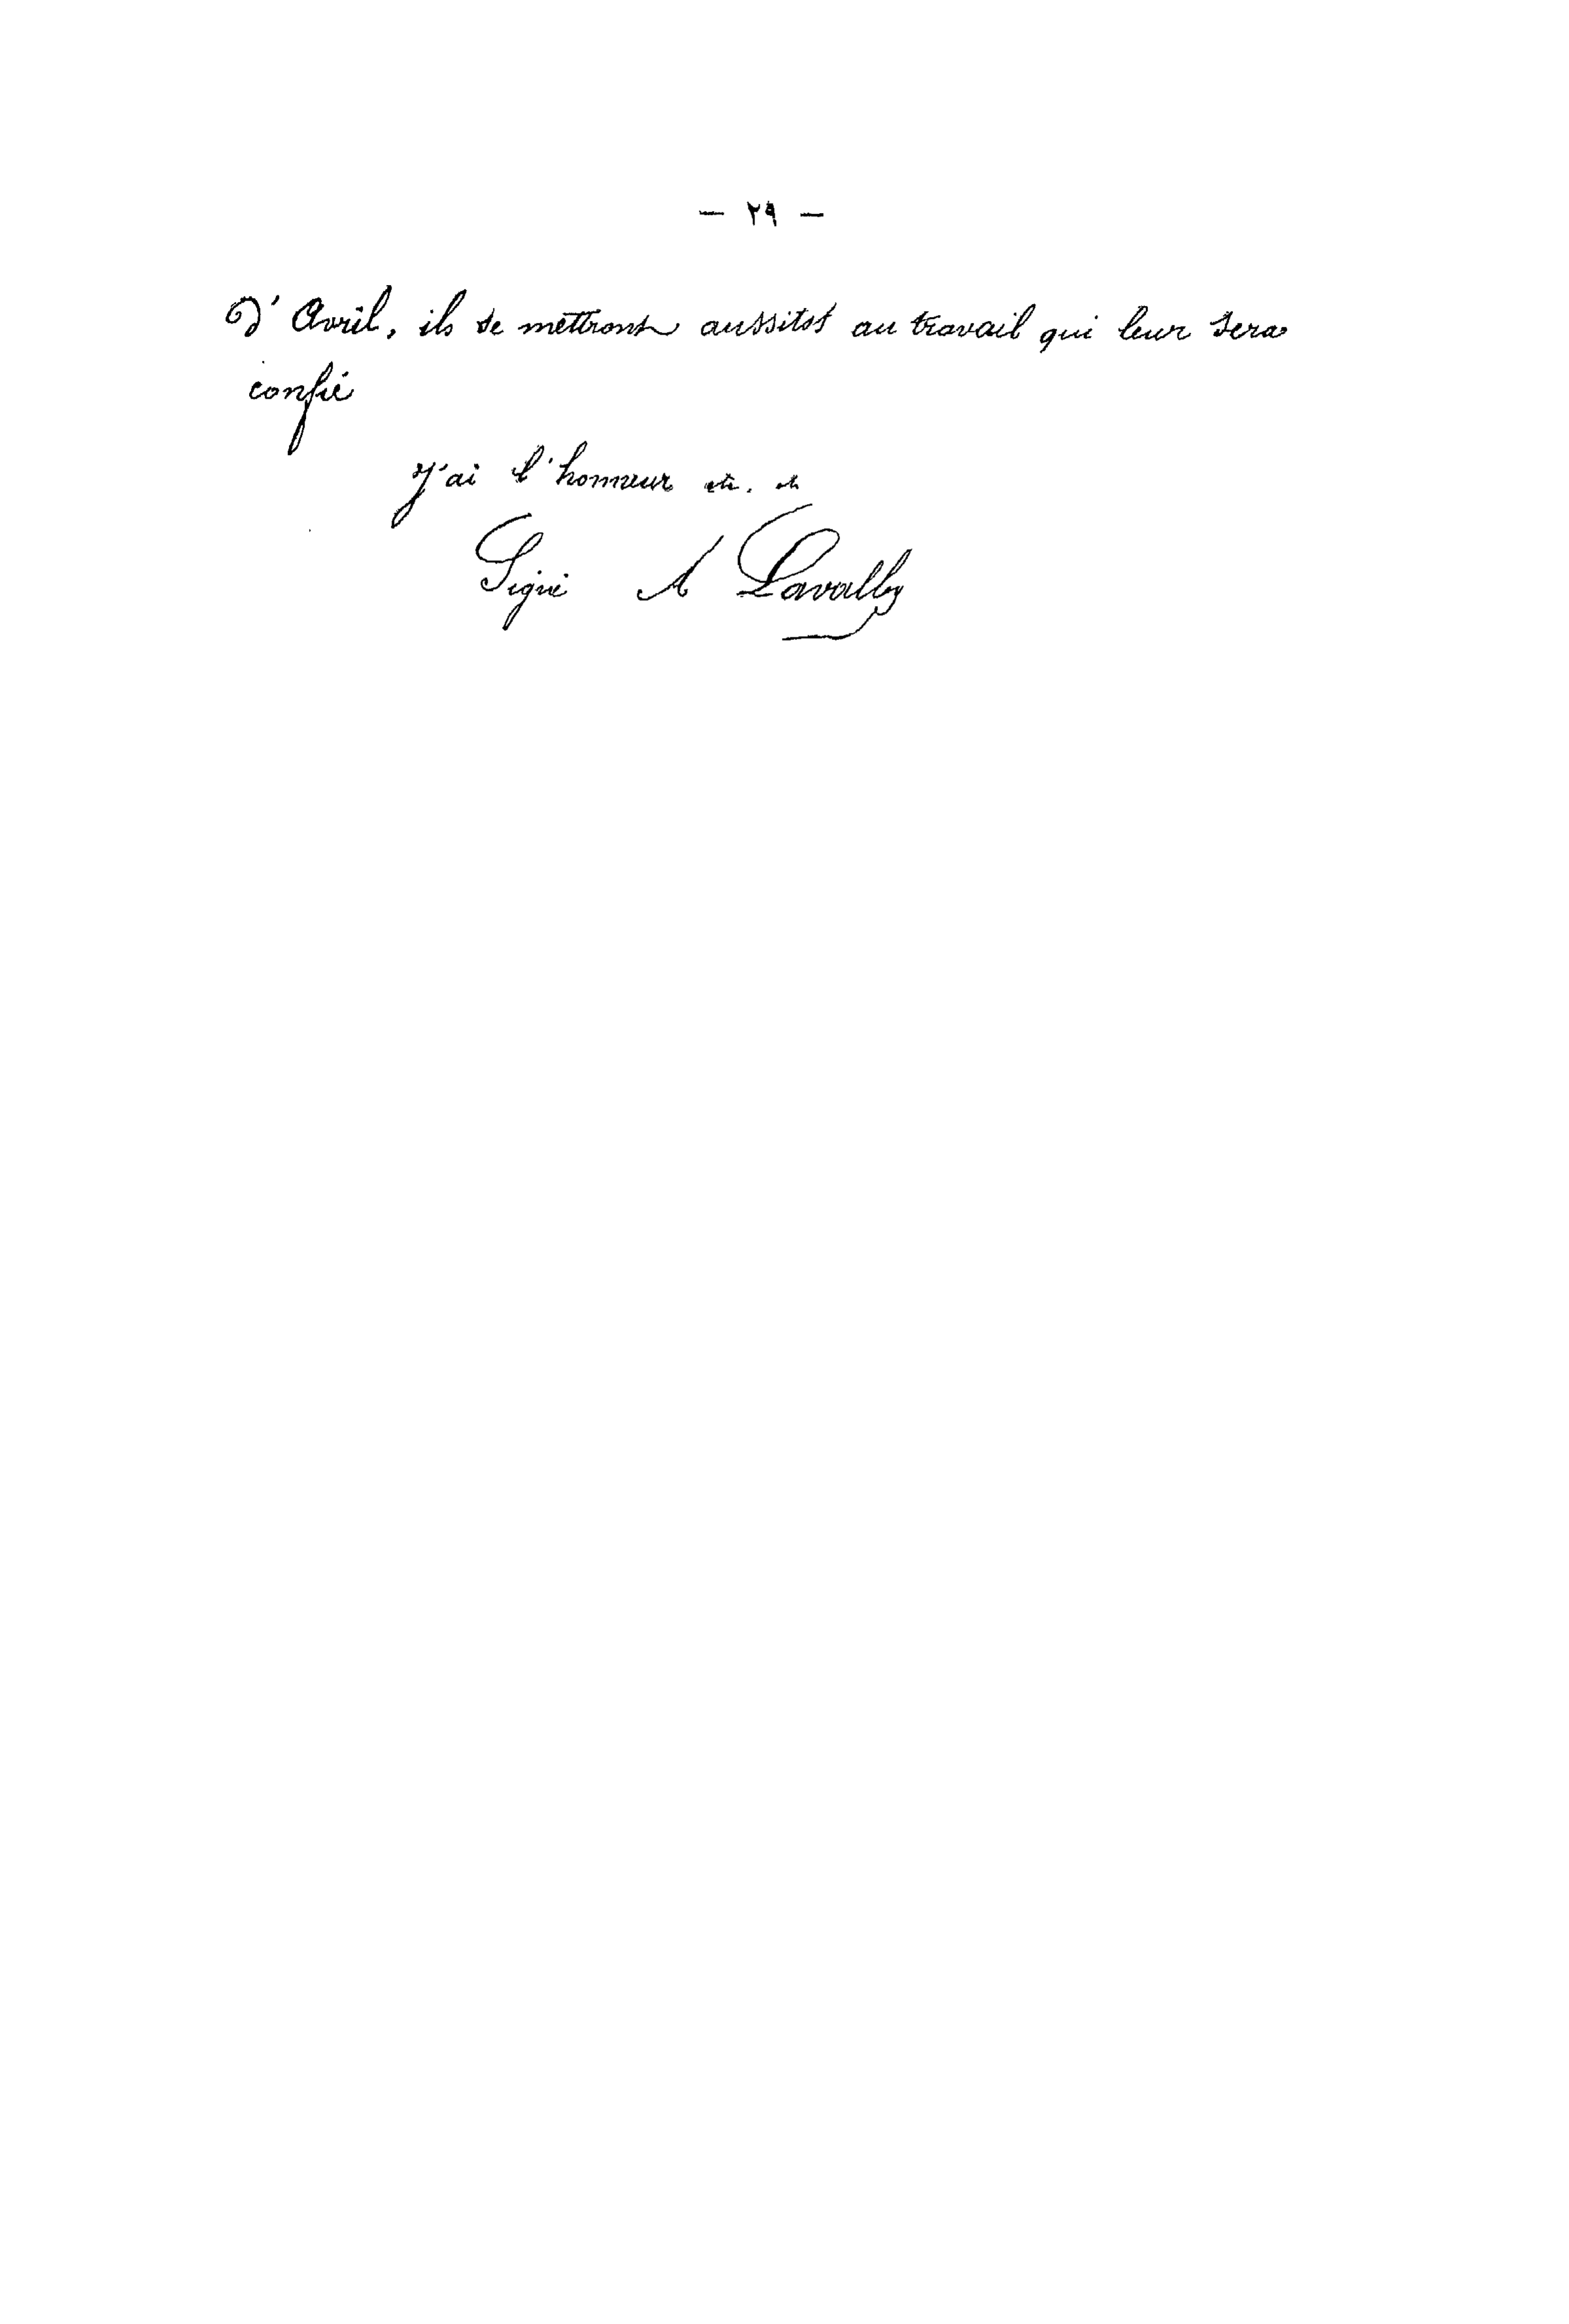 — ٢٩ —
d' Avril, ils se mettront aussitot au travail qui leur sera
confié
J'ai l'honneur etc. etc
Signé A Lavalley